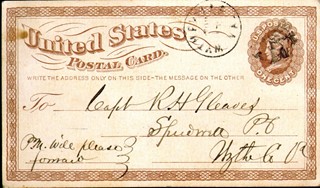 United States
POSTAL CARD.
WRITE THE ADDRESS ONLY ON THIS SIDE - THE MESSAGE ON THE OTHER
U.S. POSTAGE
ONE CENT
To Capt R H Gleaves
P.O
Wythe Co Va
P.M. will please
forward